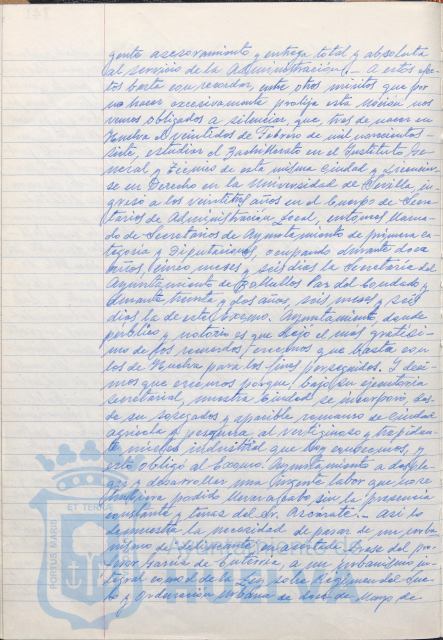 gente asesoramiento y entrega total y absoluta
al servicio de la Administración.- A estos efec-
tos basta con recordar, entre otros méritos que por
no hacer excesivamente prolija esta Moción nos
vemos obligados a silenciar, que tras de nacer en
Huelva el veintidos de Febrero de mil novecientos
siete, estudiar el Bachillerato en el Instituto Ge-
neral y Técnico de esta misma Ciudad y Licenciar-
se en Derecho en la Universidad de Sevilla, in-
gresó a los veintitres años en el Cuerpo de Secre-
tarios de Administración Local, entonces llama-
do de Secretarios de Ayuntamiento de primera ca-
tegoría y Diputaciones, ocupando durante doce
años, cinco meses y seis días la Secretaría del
Ayuntamiento de Bollullos Par del Condado y
durante treinta y dos años, seis meses y seis
días la de este Excmo. Ayuntamiento, donde
público y notorio es que dejó el más gratísi-
mo de los recuerdos, creemos que basta con
los de Huelva para los fines perseguidos. Y deci-
mos que creemos porque bajo su ejecutoria
secretarial, nuestra Ciudad se incorporó, des-
de su sosegado y apacible remanso de ciudad
agrícola y pesquera al vertiginoso y trepidan-
te mundo industrial que hoy conocemos, y
ello obligó al Excmo. Ayuntamiento a desple-
gar y desarrollar una ingente labor que no se
hubiera podido llevar a cabo sin la presencia
constante y tenaz del Sr. Azcárate.- Así lo
demuestra la necesidad de pasar de un urba-
nismo de delincuente, en acertada frase del pro-
fesor García de Enterría, a un urbanismo in-
tegral como el de la Ley sobre Régimen del Sue-
lo y Ordenación Urbana de doce de Mayo de
PORTUS MARIS
ET TERRAE